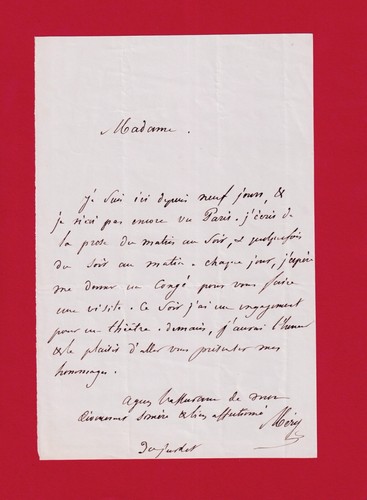 Madame.
je suis ici depuis neuf jours, &
je n'ai pas encore vu Paris. j'écris de
la prose du matin au soir, et quelquefois
du soir au matin. chaque jour, j'espère
me donner un Congé pour vous faire
une visite. Ce soir j'ai un engagement
pour un théâtre. demain, j'aurai l'honneur
& le plaisir d'aller vous présenter mes
hommages.
agréez l'assurance de mon
dévouement sincère & bien affectionné
Méry
Juillet